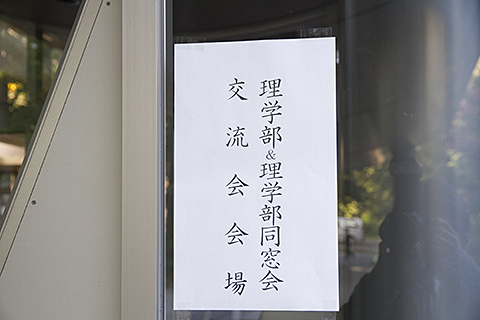 理学部&理学部同窓会
交流会会場